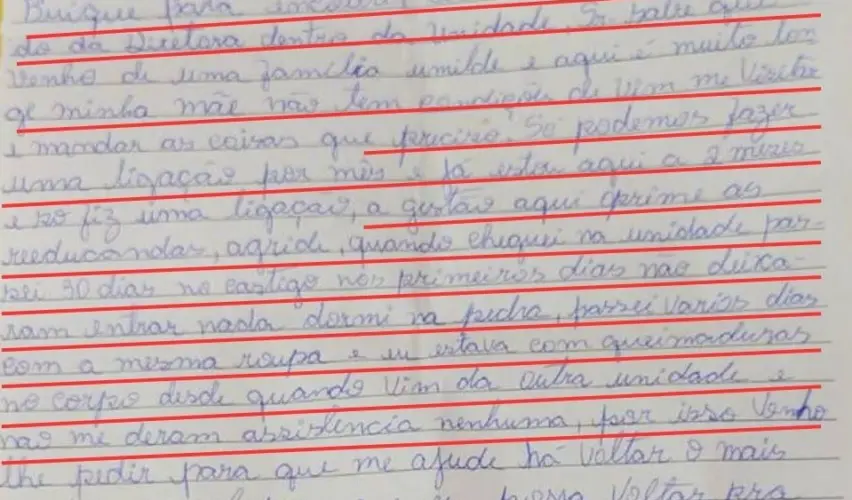 Buíque para
do da Diretora dentro da unidade. Só sabe que
venho de uma família umilde e aqui é muito lon
ge minha mãe não tem condições de vim me visita
e mandar as coisas que preciso. Só podemos fazer
uma ligação por mês e já estou aqui a 2 meses
e so fiz uma ligação, a gestão aqui oprime as
reeducandas, agride, quando cheguei na unidade pas-
sei 30 dias no castigo nos primeiros dias não deixa-
ram entrar nada dormi na pedra, passei varios dias
com a mesma roupa e eu estava com queimaduras
no corpo desde quando vim da outra unidade e
não me deram assistência nenhuma, por isso venho
lhe pedir para que me ajude há voltar o mais
possa voltar pra